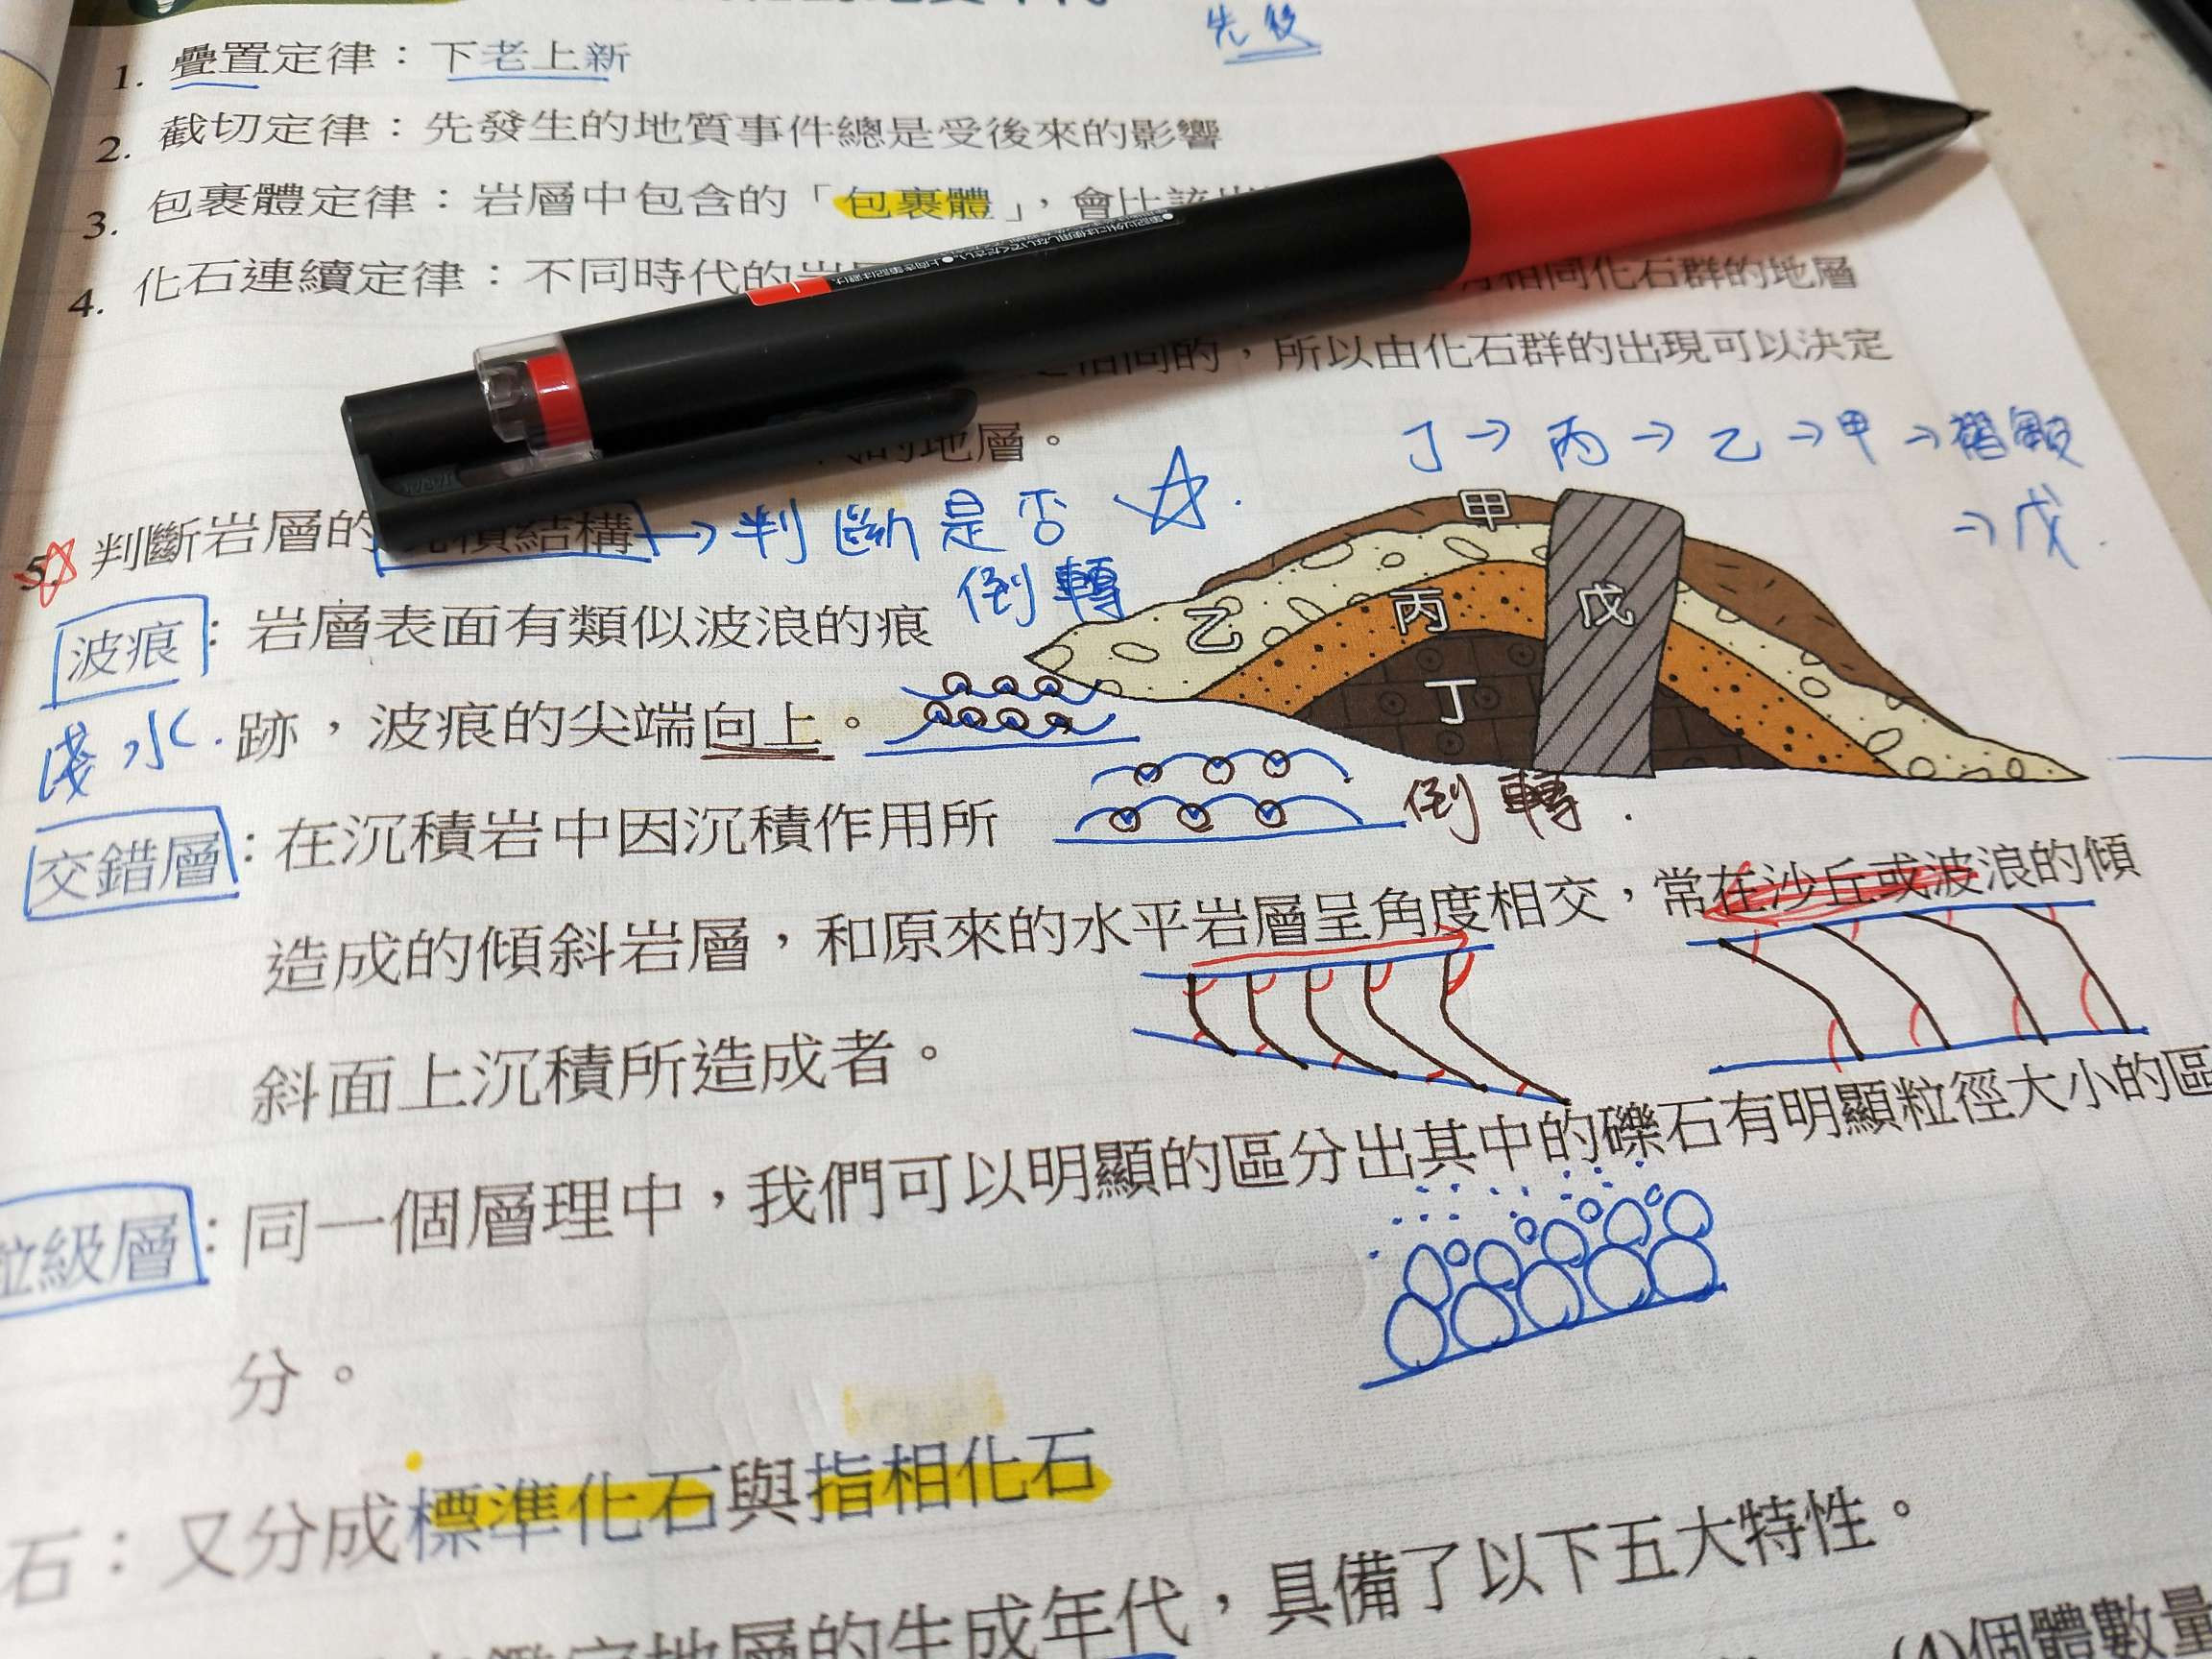 先後
1. 疊置定律：下老上新
2. 截切定律：先發生的地質事件總是受後來的影響
3. 包裹體定律：岩層中包含的「包裹體」，會比該
4. 化石連續定律：不同時代的岩
相同化石群的地層
相同的，所以由化石群的出現可以決定
的地層。
丁→丙→乙→甲→褶皺
→戊.
5. 判斷岩層的沉積結構→判斷是否倒轉☆.
甲
乙
丙
丁
戊
波痕：岩層表面有類似波浪的痕
淺水.
跡，波痕的尖端向上。
倒轉.
交錯層：在沉積岩中因沉積作用所
造成的傾斜岩層，和原來的水平岩層呈角度相交，常在沙丘或波浪的傾
斜面上沉積所造成者。
粒級層：同一個層理中，我們可以明顯的區分出其中的礫石有明顯粒徑大小的區
分。
石：又分成標準化石與指相化石
地層的生成年代，具備了以下五大特性。
(4)個體數量